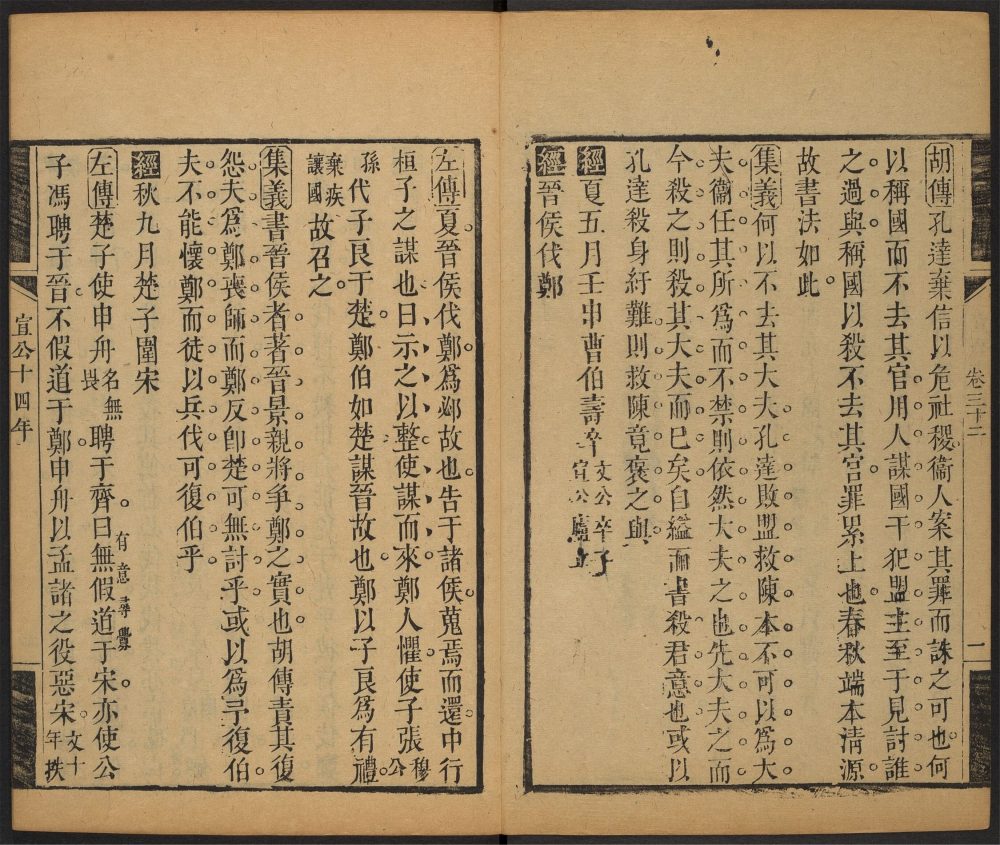 卷三十二
二
胡傳孔達棄信以危社稷衞人案其罪而誅之可也何
以稱國而不去其官用人謀國干犯盟主至于見討誰
之過與稱國以殺不去其官罪累上也春秋端本淸源
故書法如此
集義何以不去其大夫孔達敗盟救陳本不可以爲大
夫衞任其所爲而不禁則依然大夫之也先大夫之而
今殺之則殺其大夫而已矣自縊而書殺君意也或以
孔達殺身紓難則救陳竟褒之與
經夏五月壬申曹伯壽卒文公卒子宣公廬立
經晉侯伐鄭
左傳夏晉侯伐鄭爲邲故也告于諸侯蒐焉而還中行
桓子之謀也曰示之以整使謀而來鄭人懼使子張穆公
孫代子良于楚鄭伯如楚謀晉故也鄭以子良爲有禮
棄疾讓國故召之
集義書晉侯者著晉景親將爭鄭之實也胡傳責其復
怨夫爲鄭喪師而鄭反卽楚可無討乎或以爲予復伯
夫不能懷鄭而徒以兵伐可復伯乎
經秋九月楚子圍宋
左傳楚子使申舟名無畏聘于齊曰無假道于宋有意尋釁亦使公
子馮聘于晉不假道于鄭申舟以孟諸之役惡宋文十年抶
宣公十四年